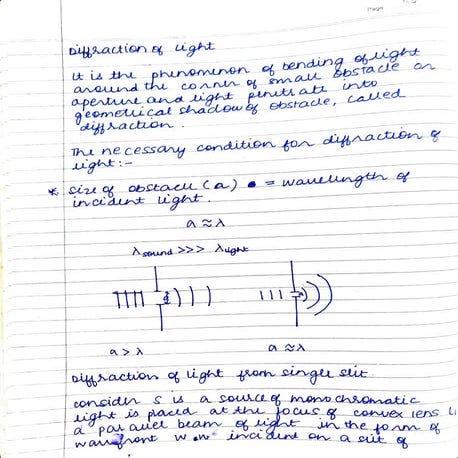 Diffraction of light
It is the phenomenon of bending of light
around the corner of small obstacle or
aperture and light penetrate into
geometrical shadow of obstacle, called
diffraction.
The necessary condition for diffraction of
light:-
* size of obstacle (a) = wavelength of
incident light.
a ≈ λ
λ sound >>> λ light
a > λ
a ≈ λ
Diffraction of light from single slit
consider S is a source of monochromatic
light is placed at the focus of convex lens
a parallel beam of light in the form of
wavefront incident on a slit of